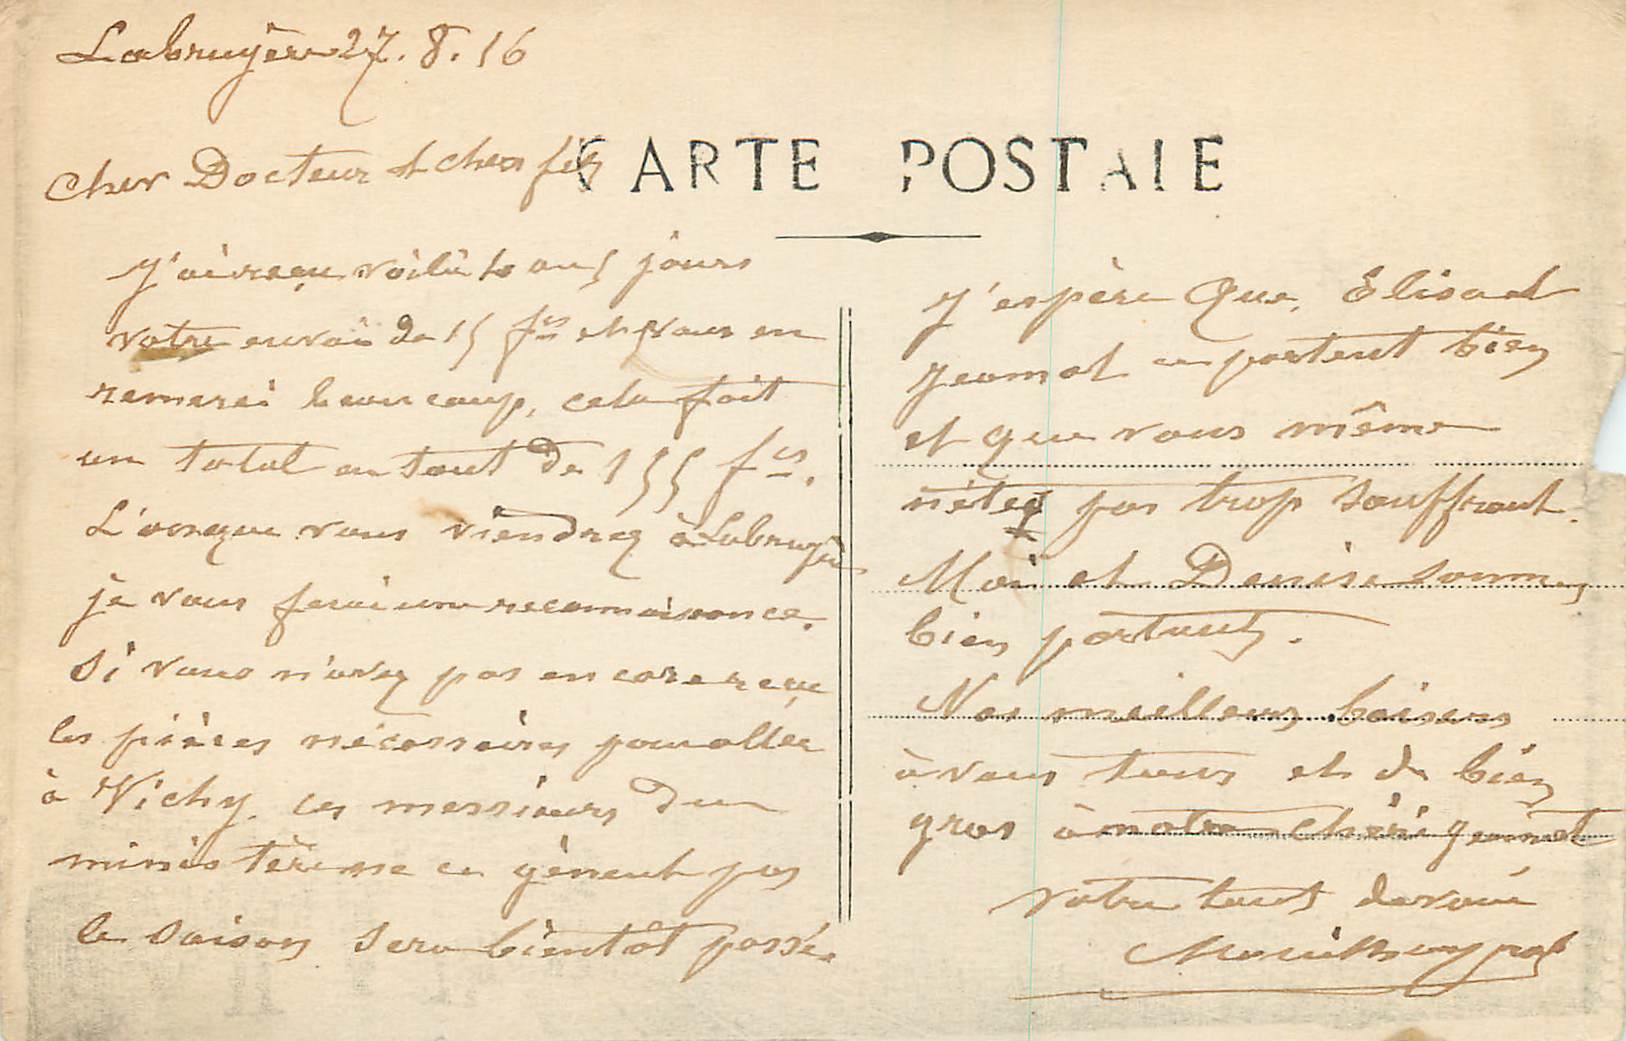 Labruyère 27.8.16
CARTE POSTALE
Cher Docteur & cher fils
J'ai reçu voilà 4 ou 5 jours
votre envoi de 15 frs et vous en
remerci beaucoup, cela fait
un total en tout de 155 frs.
L'orsque vous viendrez à Labruyère
je vous ferai une reconnaissance.
Si vous n'avez pas encore reçu
les pièces nécessaires pour aller
à Vichy. ces messieurs du
ministère ne ce gènent pas
la saison sera bientôt passée.
J'espère que Elisa et
Jeannot ce portent bien
et que vous même
n'étes pas trop souffrant.
Moi et Denise sommes
bien portants.
Nos meilleurs baisers
à vous tous et de bien
gros à notre chéri Jeannot
votre tout dévoué